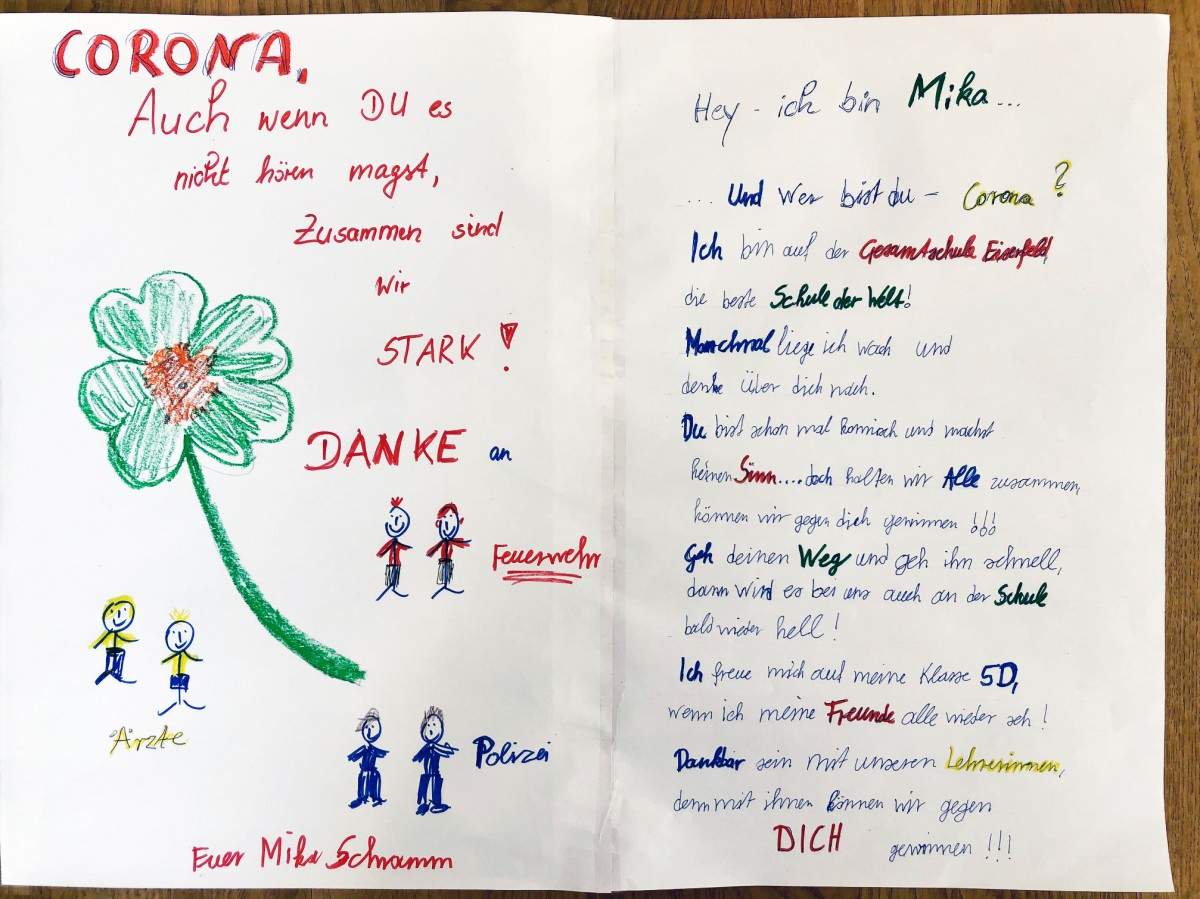 CORONA,
Auch wenn DU es
nicht hören magst,
Zusammen sind
wir
STARK !
DANKE an
Feuerwehr
Ärzte
Polizei
Euer Mika Schramm
Hey - ich bin Mika...
.... Und wer bist du - Corona ?
Ich bin auf der Gesamtschule Eiserfeld,
die beste Schule der Welt!
Manchmal liege ich wach und
denke über dich nach.
Du bist schon mal komisch und machst
keinen Sinn.... doch halten wir Alle zusammen,
können wir gegen dich gewinnen !!!
Geh deinen Weg und geh ihn schnell,
dann wird es bei uns auch an der Schule
bald wieder hell !
Ich freue mich auf meine Klasse 5D,
wenn ich meine Freunde alle wieder seh !
Dankbar sein mit unseren Lehrerinnen,
denn mit ihnen können wir gegen
DICH gewinnen !!!